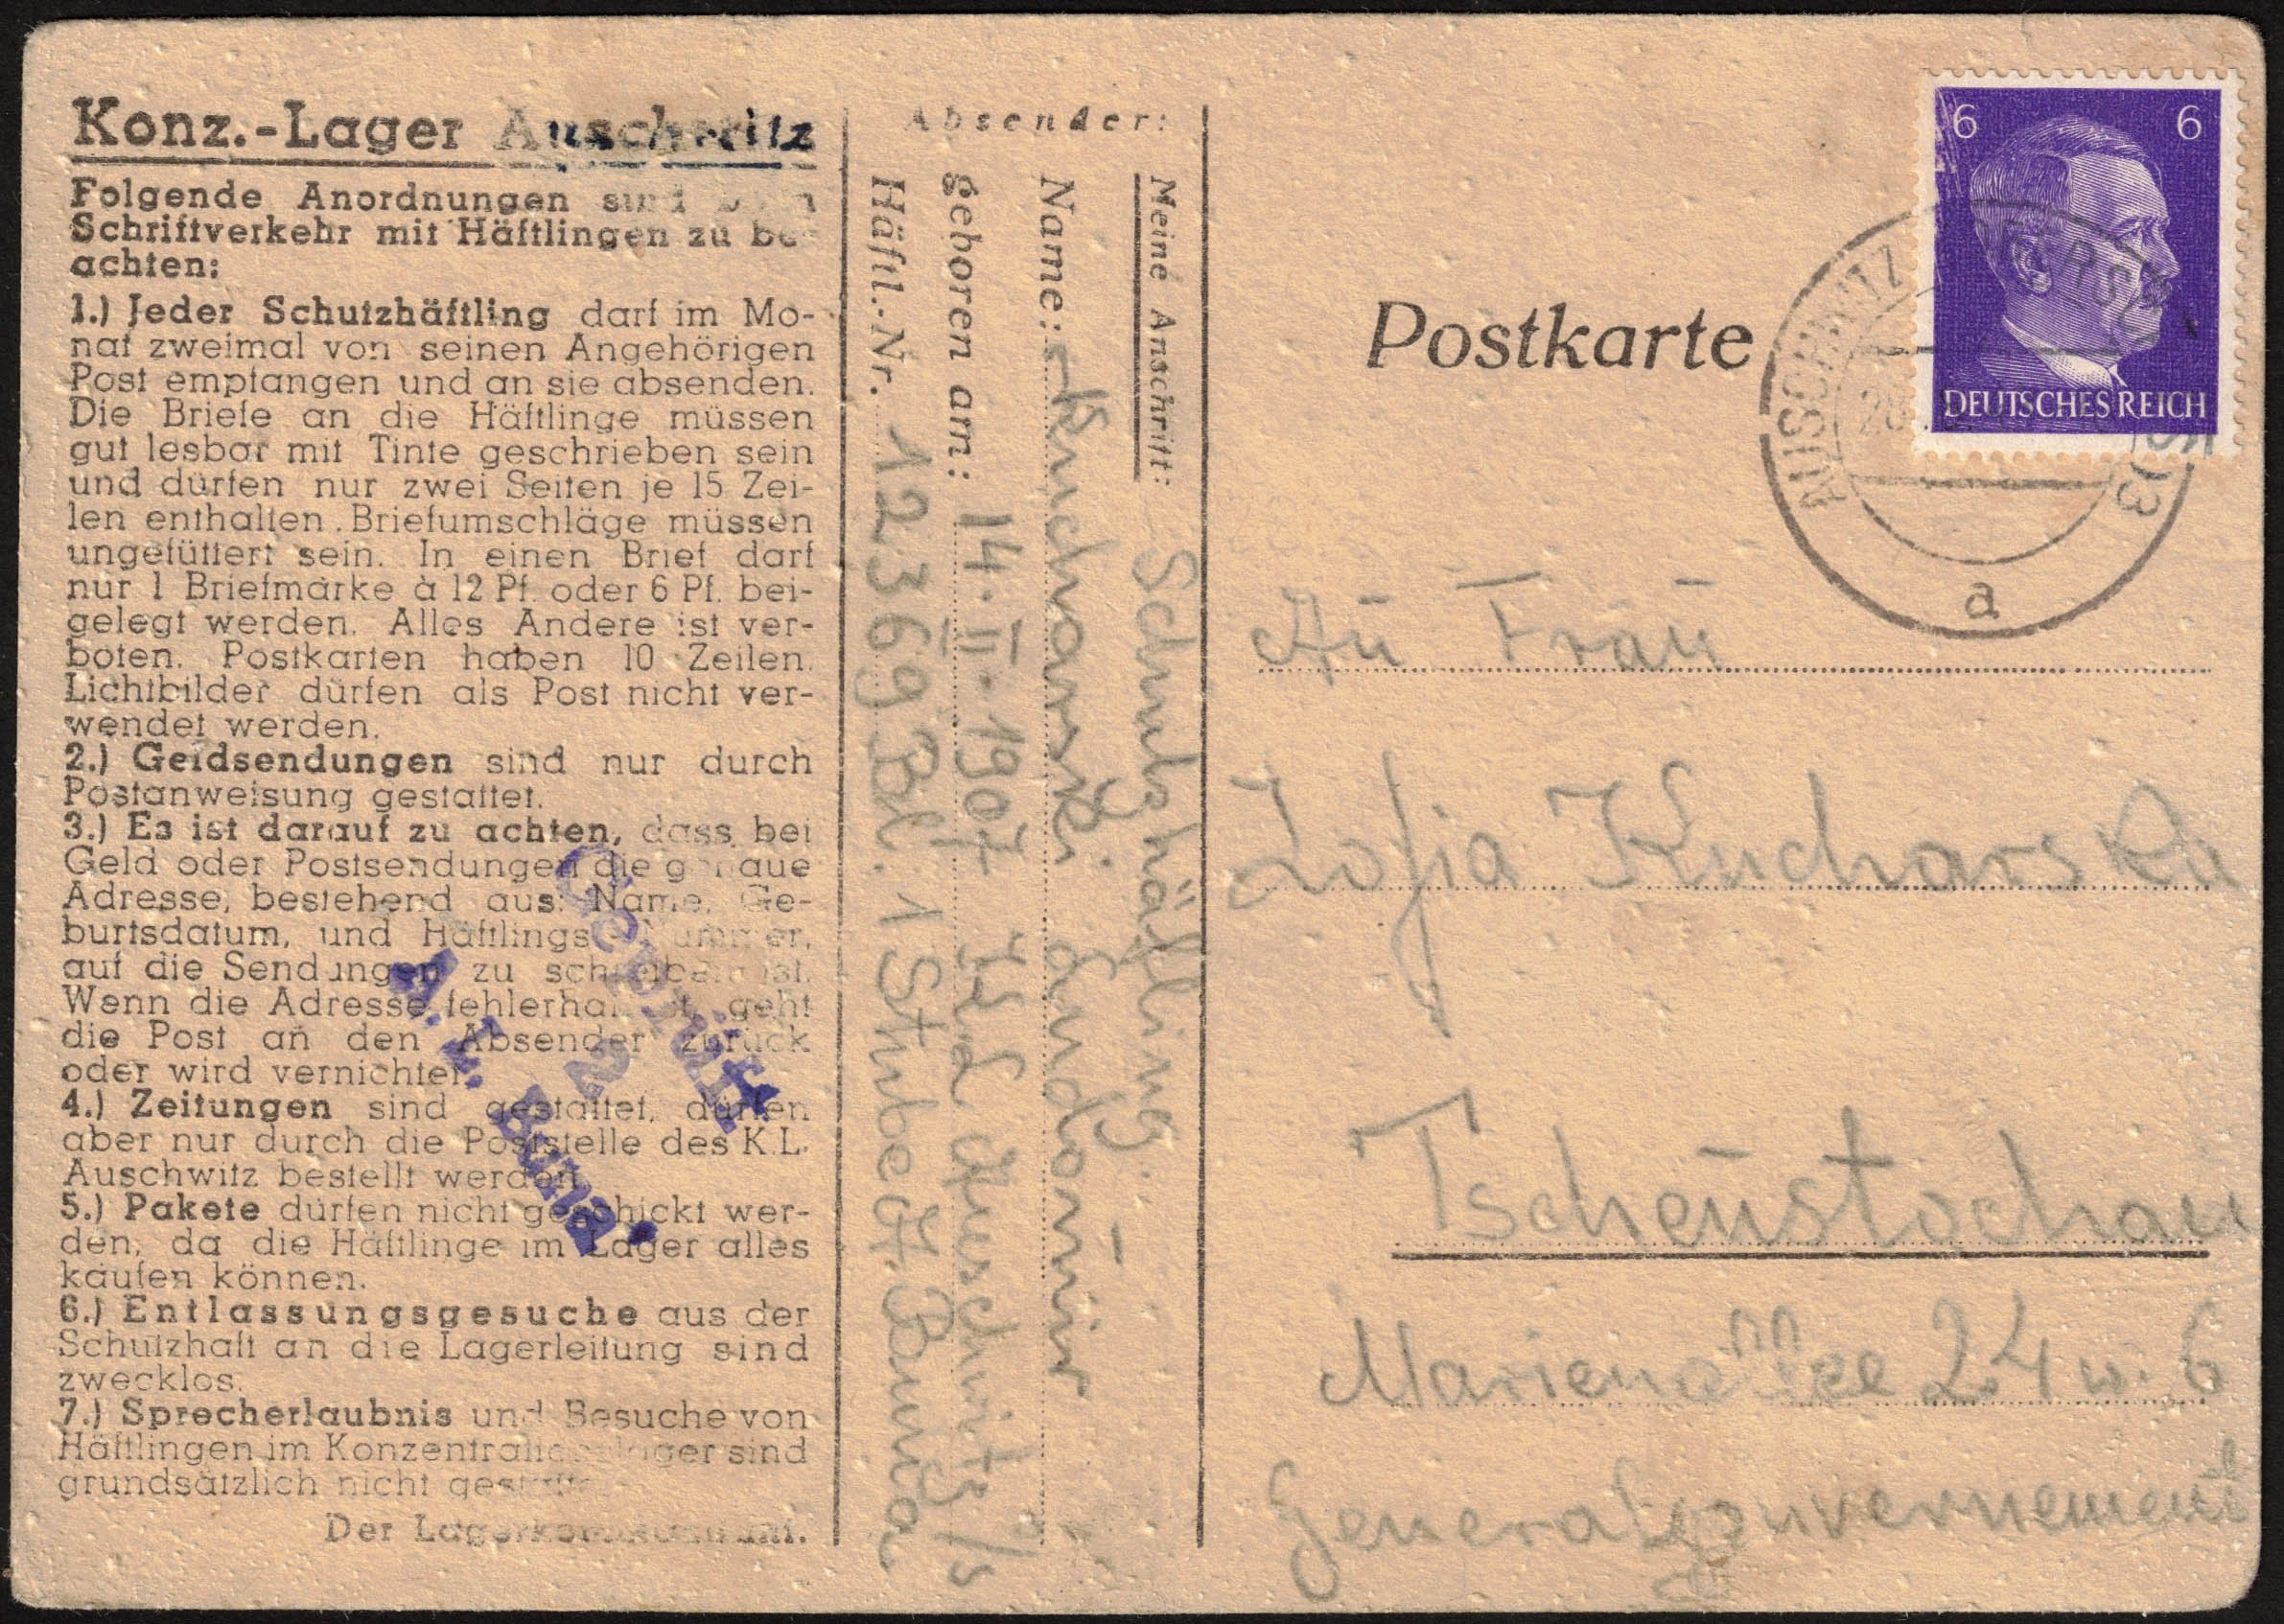 Konz.-Lager Auschwitz
Folgende Anordnungen sind beim
Schriftverkehr mit Häftlingen zu be-
achten:
1.) Jeder Schutzhäftling darf im Mo-
nat zweimal von seinen Angehörigen
Post empfangen und an sie absenden.
Die Briefe an die Häftlinge müssen
gut lesbar mit Tinte geschrieben sein
und dürfen nur zwei Seiten je 15 Zei-
len enthalten. Briefumschläge müssen
ungefüttert sein. In einen Brief darf
nur 1 Briefmarke à 12 Pf. oder 6 Pf. bei-
gelegt werden. Alles Andere ist ver-
boten. Postkarten haben 10 Zeilen.
Lichtbilder dürfen als Post nicht ver-
wendet werden.
2.) Geldsendungen sind nur durch
Postanweisung gestattet.
3.) Es ist darauf zu achten, dass bei
Geld oder Postsendungen die genaue
Adresse, bestehend aus: Name, Ge-
burtsdatum, und Häftlings-Nummer,
auf die Sendungen zu schreiben ist.
Wenn die Adresse fehlerhaft ist, geht
die Post an den Absender zurück
oder wird vernichtet.
4.) Zeitungen sind gestattet, dürfen
aber nur durch die Poststelle des K.L.
Auschwitz bestellt werden.
5.) Pakete dürfen nicht geschickt wer-
den, da die Häftlinge im Lager alles
kaufen können.
6.) Entlassungsgesuche aus der
Schutzhaft an die Lagerleitung sind
zwecklos.
7.) Sprecherlaubnis und Besuche von
Häftlingen im Konzentrationslager sind
grundsätzlich nicht gestattet.
Der Lagerkommandant.
Geprüft
2
A. L. Buna.
Absender:
Meine Anschrift:
Schutzhäftling.
Name: Kucharski. Zündomir
geboren am: 14. II. 1907 Kl Auschwitz o/s
Häftl.-Nr. 12369 Bl. 1 Stube J. Buna
Postkarte
6 6
DEUTSCHES REICH
AUSCHWITZ
a
An Frau
Zofia Kucharska
Tschenstochau
Marienallee 24 w. 6
Generalgouvernement